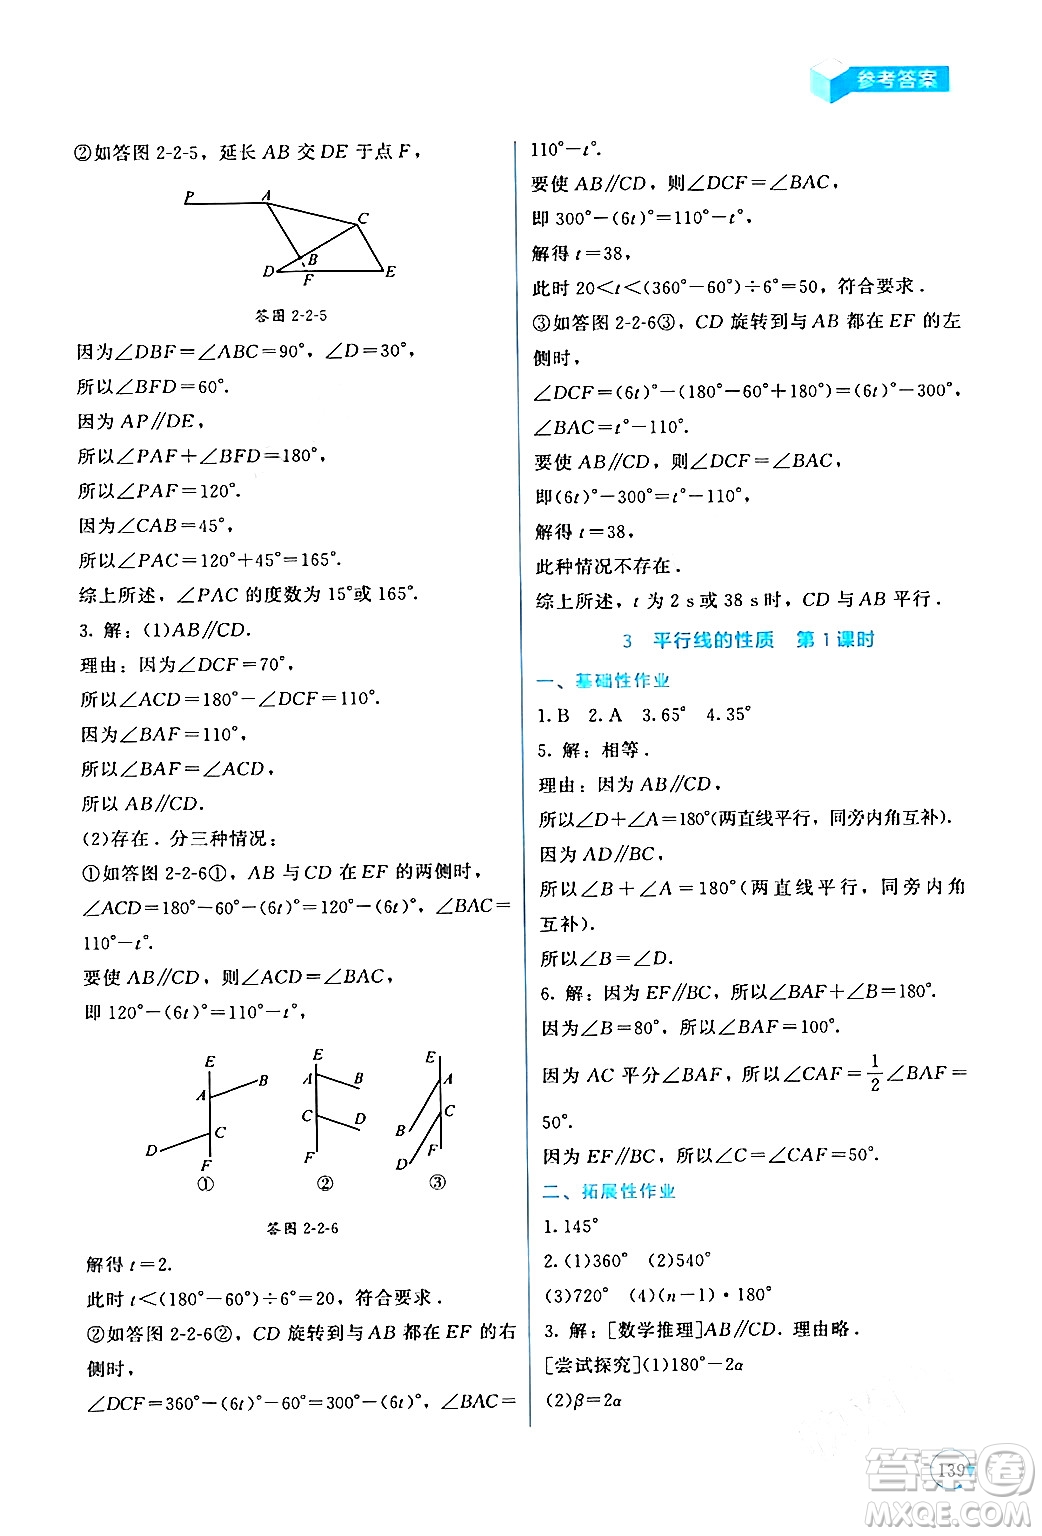 参考答案
②如答图 2-2-5，延长 AB 交 DE 于点 F，
P A C
D B F E
答图 2-2-5
因为∠DBF＝∠ABC＝90°，∠D＝30°，
所以∠BFD＝60°.
因为 AP∥DE，
所以∠PAF＋∠BFD＝180°，
所以∠PAF＝120°.
因为∠CAB＝45°，
所以∠PAC＝120°＋45°＝165°.
综上所述，∠PAC 的度数为 15°或 165°.
3. 解：(1)AB∥CD.
理由：因为∠DCF＝70°，
所以∠ACD＝180°－∠DCF＝110°.
因为∠BAF＝110°，
所以∠BAF＝∠ACD，
所以 AB∥CD.
(2)存在．分三种情况：
①如答图 2-2-6①，AB 与 CD 在 EF 的两侧时，
∠ACD＝180°－60°－(6t)°＝120°－(6t)°，∠BAC＝
110°－t°.
要使 AB∥CD，则∠ACD＝∠BAC，
即 120°－(6t)°＝110°－t°，
E A B D C F ①
E A B C D F ②
E A C B D F ③
答图 2-2-6
解得 t＝2.
此时 t＜(180°－60°)÷6°＝20，符合要求．
②如答图 2-2-6②，CD 旋转到与 AB 都在 EF 的右
侧时，
∠DCF＝360°－(6t)°－60°＝300°－(6t)°，∠BAC＝
110°－t°.
要使 AB∥CD，则∠DCF＝∠BAC，
即 300°－(6t)°＝110°－t°，
解得 t＝38，
此时 20＜t＜(360°－60°)÷6°＝50，符合要求．
③如答图 2-2-6③，CD 旋转到与 AB 都在 EF 的左
侧时，
∠DCF＝(6t)°－(180°－60°＋180°)＝(6t)°－300°，
∠BAC＝t°－110°.
要使 AB∥CD，则∠DCF＝∠BAC，
即(6t)°－300°＝t°－110°，
解得 t＝38，
此种情况不存在．
综上所述，t 为 2 s或 38 s时，CD 与 AB 平行．
3 平行线的性质 第 1 课时
一、基础性作业
1. B 2. A 3. 65° 4. 35°
5. 解：相等．
理由：因为 AB∥CD，
所以∠D＋∠A＝180°(两直线平行，同旁内角互补).
因为 AD∥BC，
所以∠B＋∠A＝180°(两直线平行，同旁内角
互补).
所以∠B＝∠D.
6. 解：因为 EF∥BC，所以∠BAF＋∠B＝180°.
因为∠B＝80°，所以∠BAF＝100°.
因为 AC 平分∠BAF，所以∠CAF＝1/2∠BAF＝
50°.
因为 EF∥BC，所以∠C＝∠CAF＝50°.
二、拓展性作业
1. 145°
2. (1)360° (2)540°
(3)720° (4)(n－1)·180°
3. 解：[数学推理]AB∥CD. 理由略．
[尝试探究](1)180°－2α
(2)β＝2α
139
答案卷
MXQE.COM